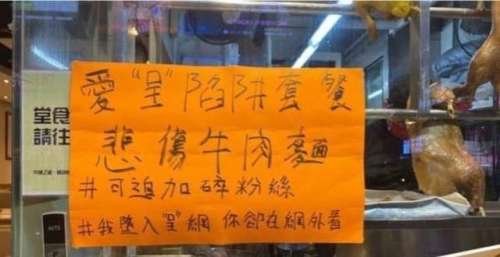 堂食
請往
愛"呈"陷阱套餐
悲傷牛肉麵
#可追加碎粉絲
#我墮入"呈"網 你卻在網外看